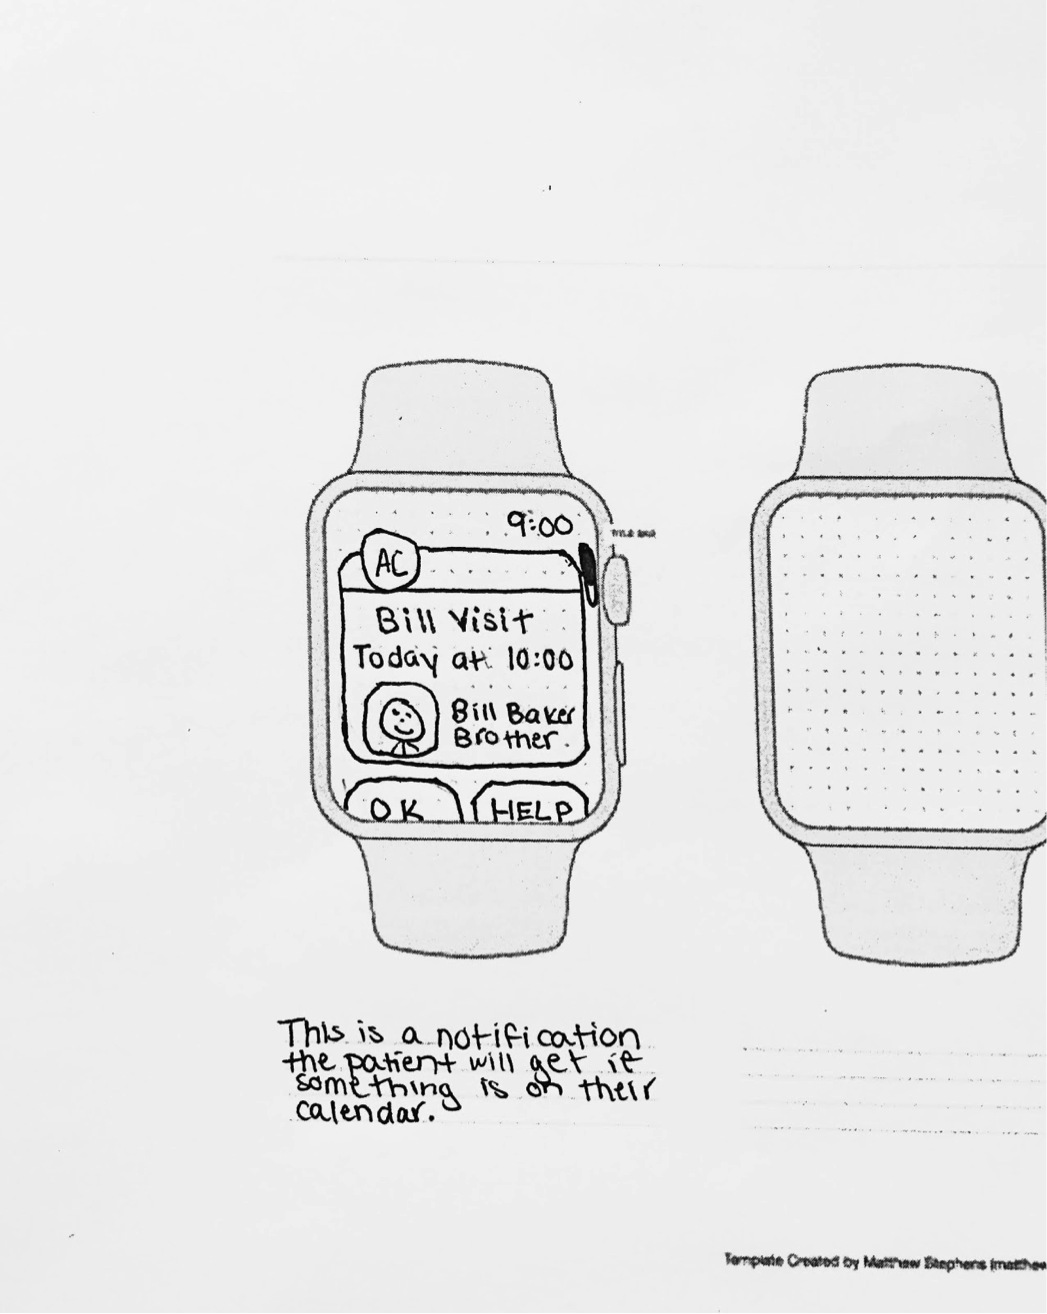 9:00
AC
Bill Visit
Today at 10:00
Bill Baker
Brother.
OK
HELP
This is a notification
the patient will get if
something is on their
calendar.
Template Created by Matthew Stephens (matthew